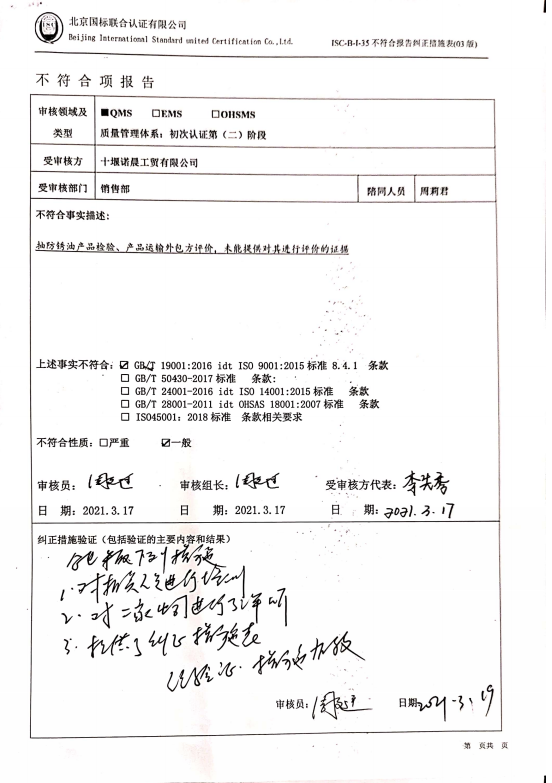 北京国标联合认证有限公司
Beijing International Standard united Certification Co.,Ltd.
ISC-B-I-35 不符合报告纠正措施表(03 版)
不符合项报告
审核领域及类型 ■QMS □EMS □OHSMS
质量管理体系：初次认证第（二）阶段
受审核方 十堰诺晨工贸有限公司
受审核部门 销售部 陪同人员 周莉君
不符合事实描述：
抽防锈油产品检验、产品运输外包方评价，未能提供对其进行评价的证据
上述事实不符合：☑ GB/T 19001:2016 idt ISO 9001:2015 标准 8.4.1 条款
□ GB/T 50430-2017 标准 条款：
□ GB/T 24001-2016 idt ISO 14001:2015 标准 条款
□ GB/T 28001-2011 idt OHSAS 18001:2007 标准 条款
□ ISO45001：2018 标准 条款相关要求
不符合性质：□严重 ☑一般
审核员： 审核组长： 受审核方代表：李先秀
日 期：2021.3.17 日 期：2021.3.17 日 期：2021.3.17
纠正措施验证（包括验证的主要内容和结果）
采取下列措施
1. 对相关人员进行培训
2. 对二家公司进行了评价
3. 提供了纠正措施表
经验证，措施有效
审核员： 日期 2021-3-19
第 页共 页